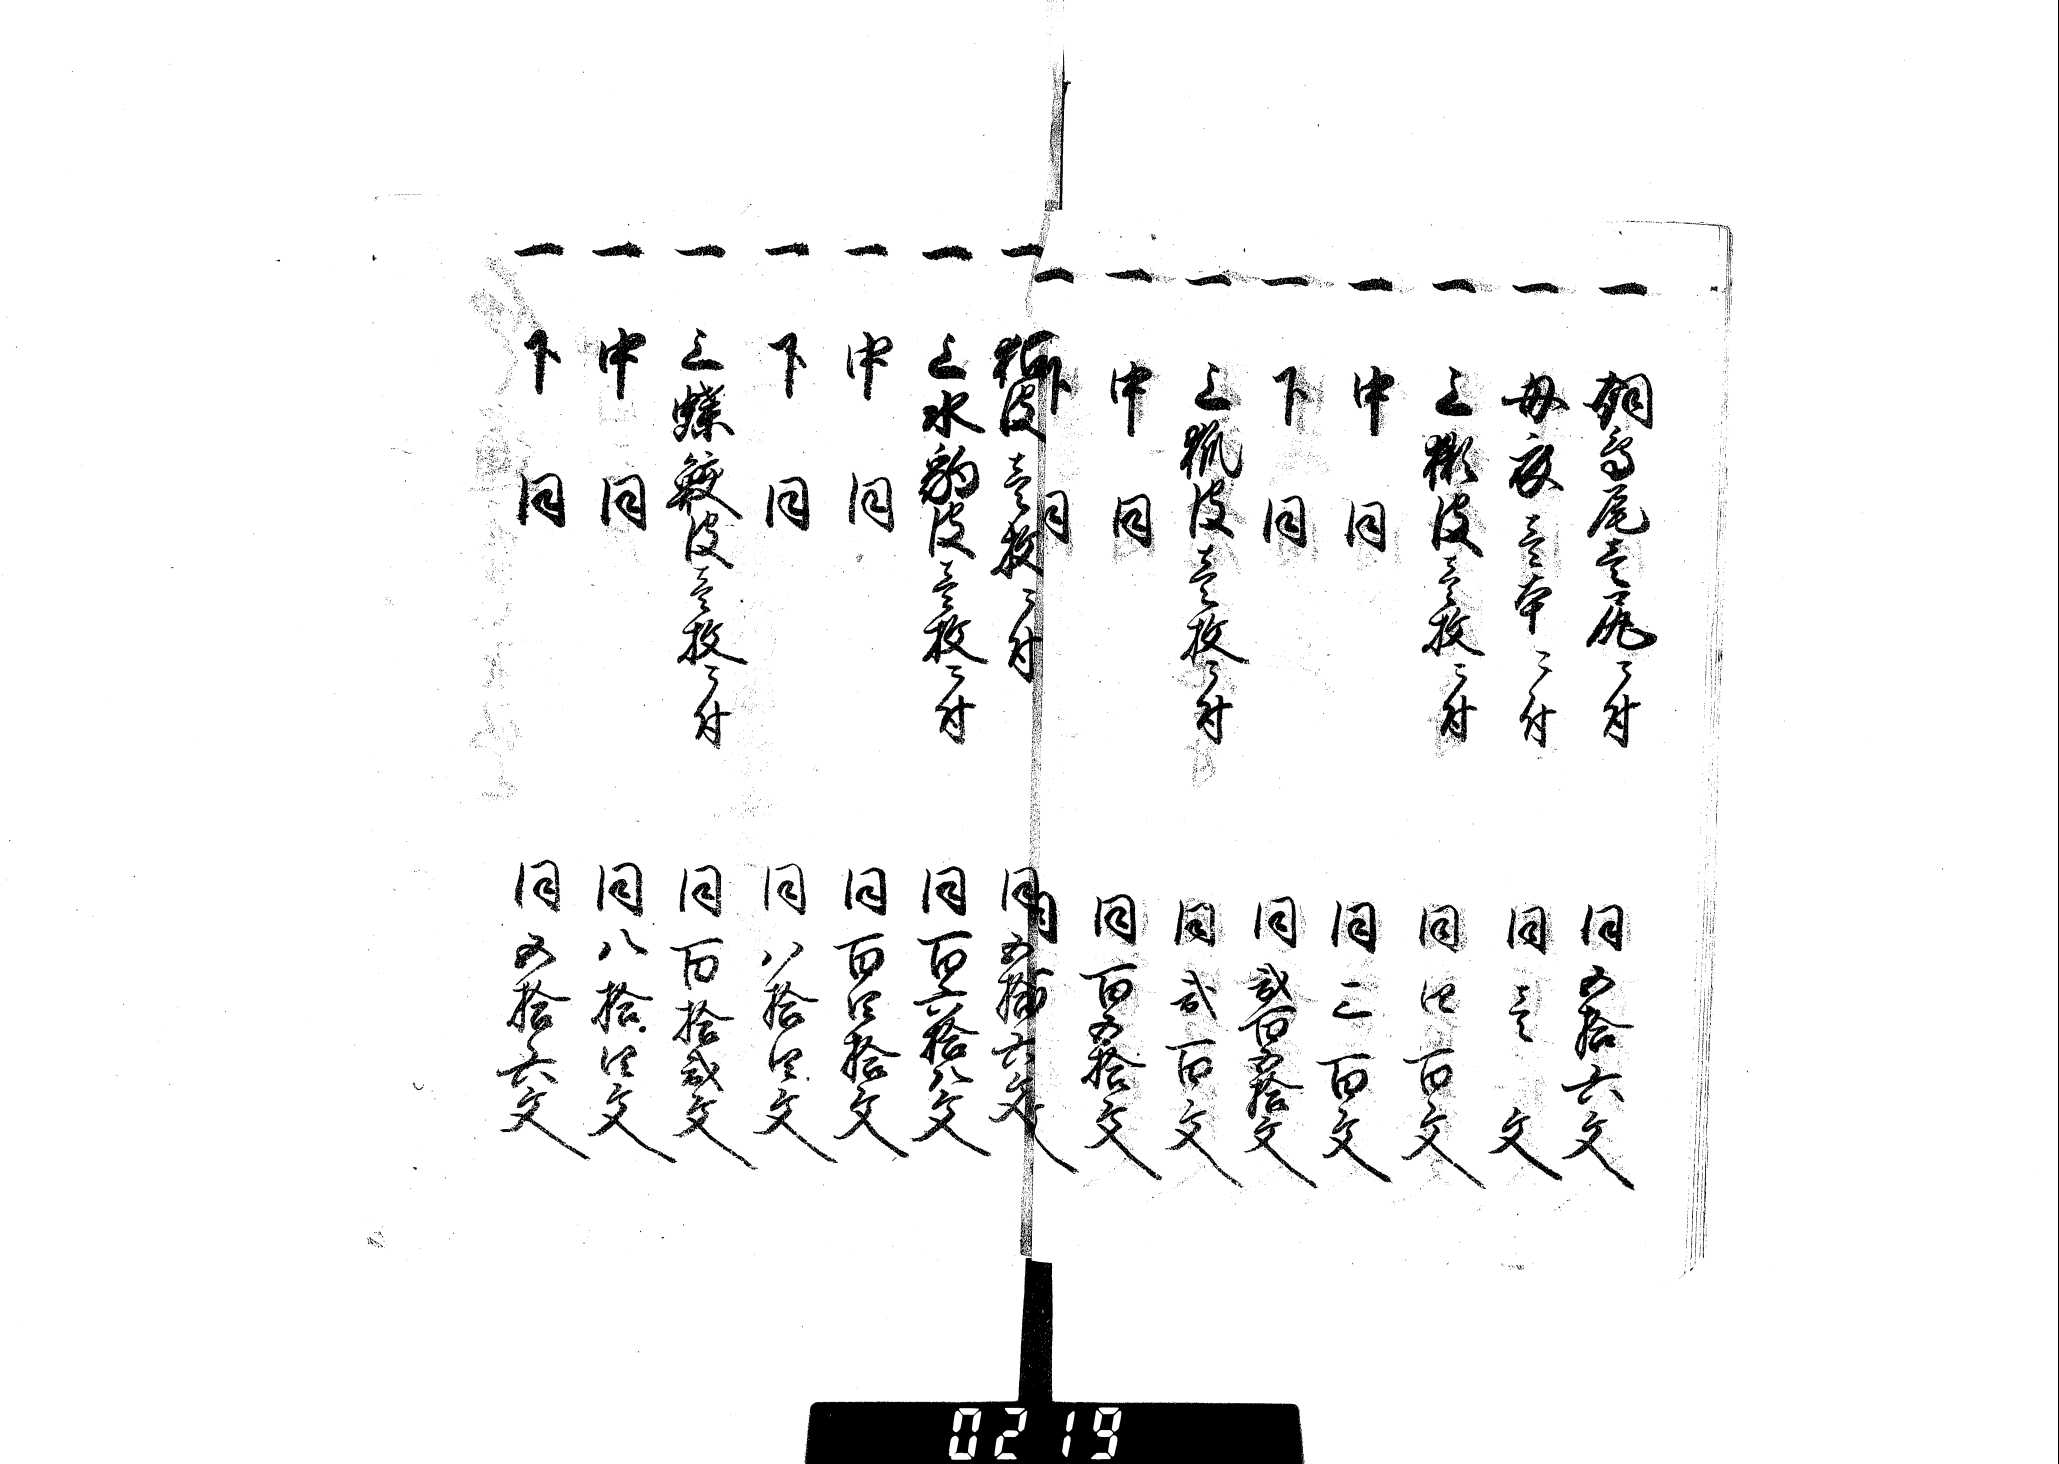 一 鵰鳥尾壱尻ニ付 同五拾六文
一 母衣壱本ニ付 同壱文
一 上獺皮壱枚ニ付 同四百文
一 中同 同三百文
一 下同 同弐百五拾文
一 上狐皮壱枚ニ付 同弐百文
一 中同 同百五拾文
一 下同 同
一 狛皮壱枚ニ付 同五拾六文
一 上水豹皮壱枚ニ付 同百六拾八文
一 中同 同百四拾文
一 下同 同八拾四文
一 上蝶鮫皮壱枚ニ付 同百拾弐文
一 中同 同八拾四文
一 下同 同五拾六文
0219